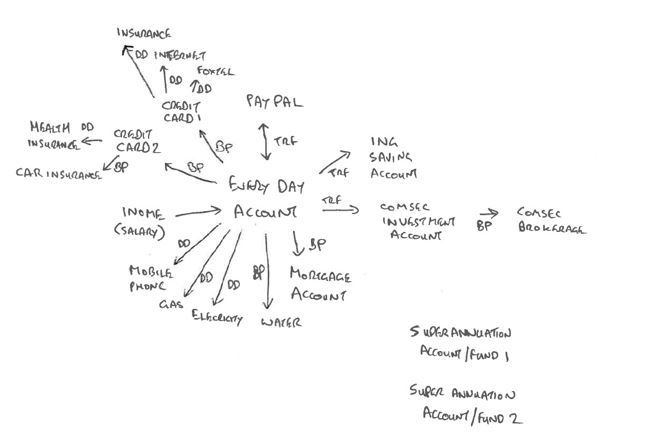 INSURANCE
DD INTERNET
DD FOXTEL
DD
CREDIT
CARD 1
PAYPAL
HEALTH DD
INSURANCE
CREDIT
CARD 2
BP
TRF
ING
SAVING
ACCOUNT
CAR INSURANCE
BP
BP
TRF
EVERY DAY
ACCOUNT
TRF
INOME
(SALARY)
COMSEC
INVESTMENT
ACCOUNT
BP
COMSEC
BROKERAGE
DD
DD
DD
BP
BP
MOBILE
PHONE
GAS
ELECRICITY
WATER
MORTGAGE
ACCOUNT
SUPERANNUATION
ACCOUNT/FUND 1
SUPER ANNUATION
ACCOUNT/FUND 2